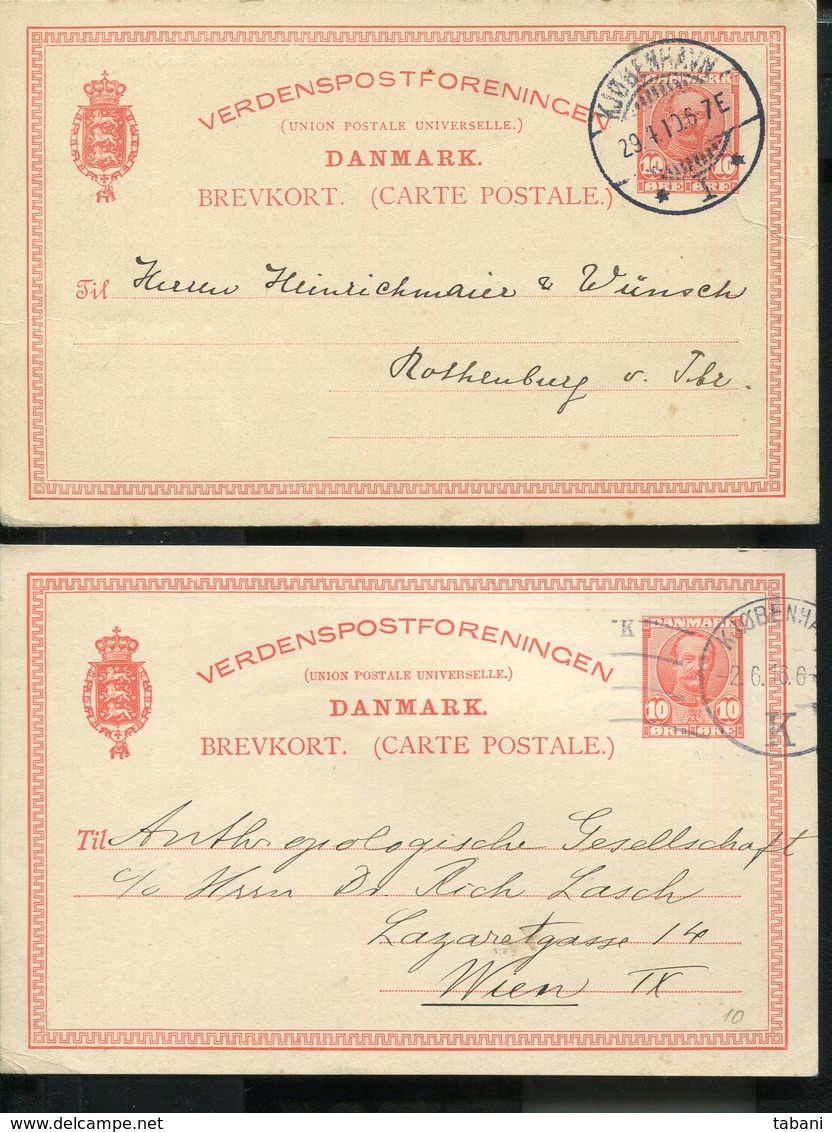 VERDENSPOSTFORENINGEN
(UNION POSTALE UNIVERSELLE.)
DANMARK.
BREVKORT. (CARTE POSTALE.)
DANMARK
10 10
ØRE ØRE
KJØBENHAVN
29.4.10.6-7E
* 1 *
Til Herren Heinrichmaier & Wünsch
Rothenburg v. Tbr.
VERDENSPOSTFORENINGEN
(UNION POSTALE UNIVERSELLE.)
DANMARK.
BREVKORT. (CARTE POSTALE.)
DANMARK
10 10
ØRE ØRE
K
KJØBENHA
-2.6. 6.6-
K
Til Anthropologische Gesellschaft
c/o Herrn Dr. Rich Lasch
Lazaretgasse 14
Wien IX
10
www.delcampe.net
tabani